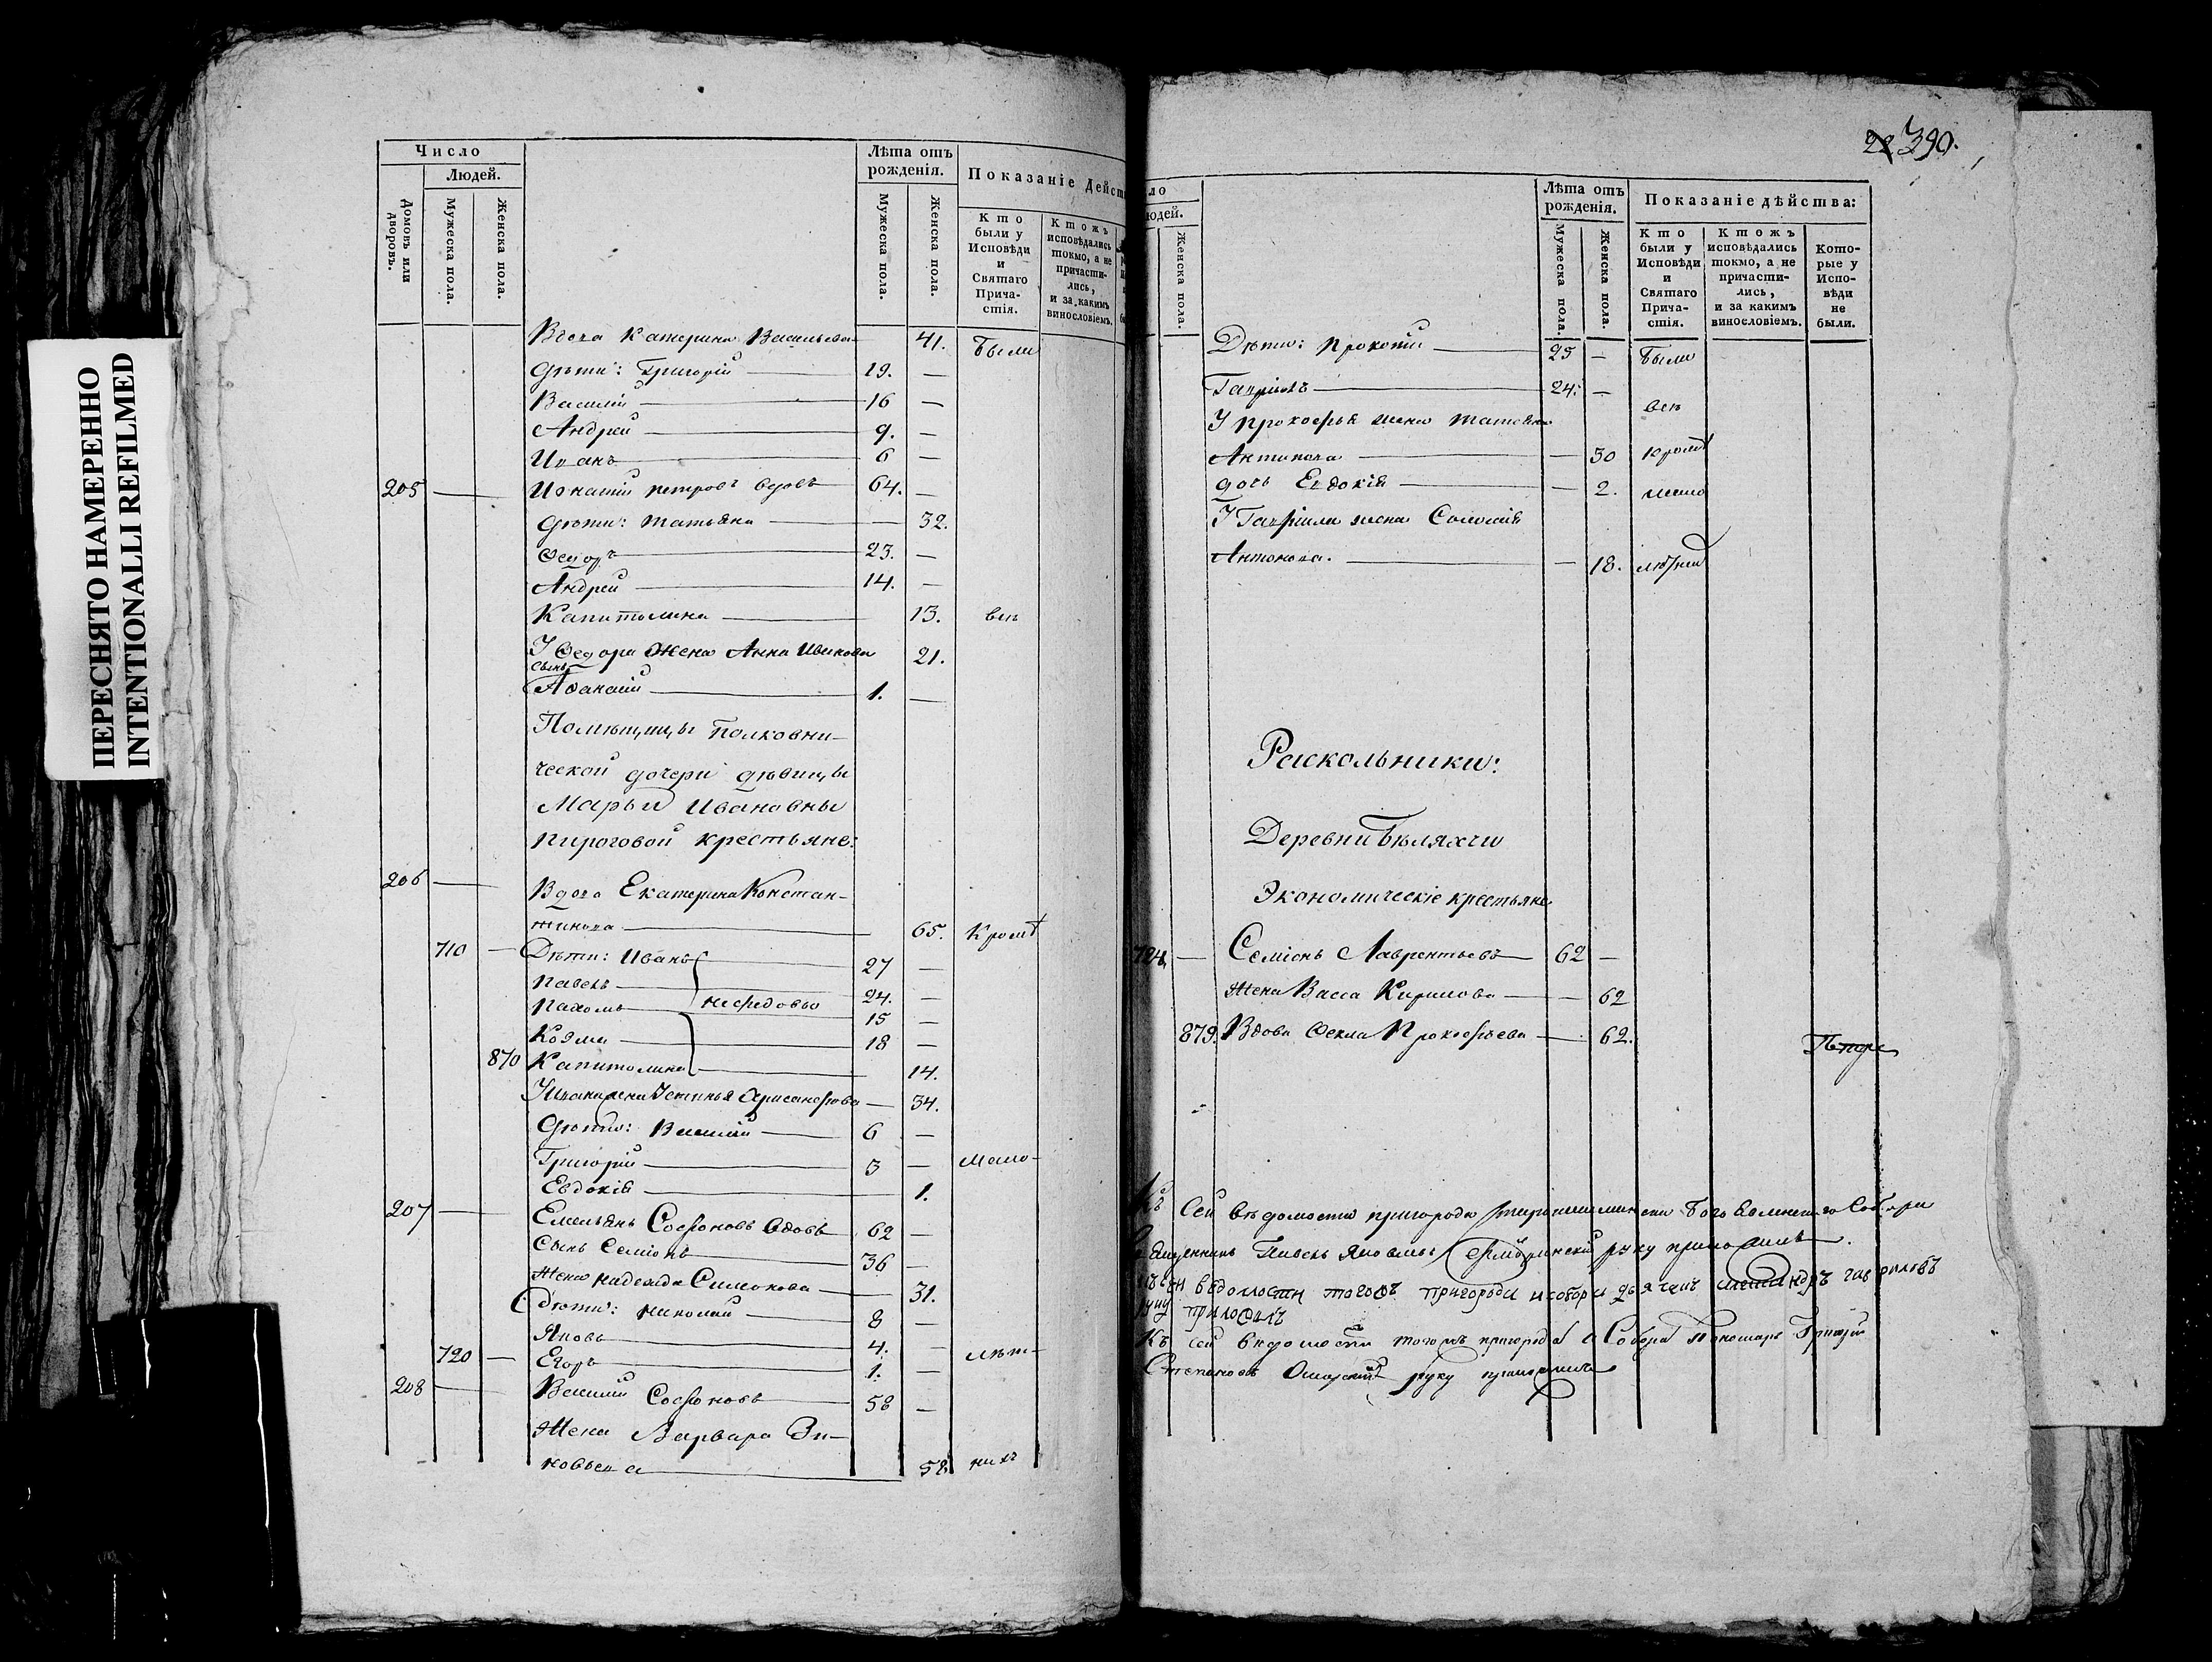 ПЕРЕСНЯТО НАМЕРЕННО
INTENTIONALLI REFILMED
Число
Людей.
Домовъ или дворовъ.
Мужеска пола.
Женска пола.
Лѣта отъ рожденія.
Мужеска пола.
Женска пола.
Показаніе Дейст
Кто были у Исповѣди и Святаго Прича-стія.
Ктожъ исповѣдались токмо, а не причасти-лись, и за какимъ винословіемъ.
Вдова Катерина Васильева 41. Были
дѣти: Григорій 19. —
Василій 16 —
Андрей 9. —
Иванъ 6 —
205 — Игнатій Петровъ вдовъ 64. —
дѣти: Татьяна — 32.
Ѳедоръ 23. —
Андрей 14. —
Капитолина 13. всѣ
У Ѳедора жена Анна Иванова 21.
сынъ
Аѳанасій 1. —
Помѣщицы Полковни-
ческой дочери дѣвицы
Марьи Ивановны
Пироговой крестьяне:
206 — Вдова Екатерина Констан-
тинова 65. Кромѣ
710 — Дѣти: Иванъ 27 —
Павелъ 24. —
Пахомъ 15 —
Козма 18 —
870 Капитолина 14.
У Ивана жена Устинья — 34.
Дѣти: Василій 6 —
Григорій 3 — мало-
Евдокія 1.
207 — Емельянъ Софроновъ вдовъ 62 —
Сынъ Семіонъ 36 —
Жена Надежда Симонова 31.
дѣти: Николай 8 —
Яковъ 4. —
720 — Егоръ 1. — лѣт-
208 — Василій Софроновъ 58 —
Жена Варвара Зи-
новьева 58 нихъ
22 390.
ло
юдей.
Женска пола.
Лѣта отъ рожденія.
Мужеска пола.
Женска пола.
Показаніе дѣйства:
Кто были у Исповѣди и Святаго Прича-стія.
Ктожъ исповѣдались токмо, а не причасти-лись, и за какимъ винословіемъ.
Кото-рые у Испо-вѣди не были.
Дѣти: Прокопій 25 — Были
Гавріилъ 24. — всѣ
У Прокофья жена Татьяна
Антипова — 30 кромѣ
дочь Евдокія — 2. мало
У Гавріила жена Соломія
Антонова. — 18. лѣтних
Раскольники:
Деревни Бѣляхчи
Экономическіе крестьяне
724 — Семіонъ Лаврентьевъ 62 —
Жена Васса Кирилова — 62
879. Вдова Ѳекла Прокофьева — 62.
Къ сей вѣдомости пригорода Собора
Священникъ Павелъ Яковлевъ руку приложилъ.
къ сей вѣдомости тогожъ пригорода и собора дьячекъ Александръ Гавриловъ
руку приложилъ
Къ сей вѣдомости тогожъ пригорода Собора Пономарь Григорій
Степановъ руку приложилъ